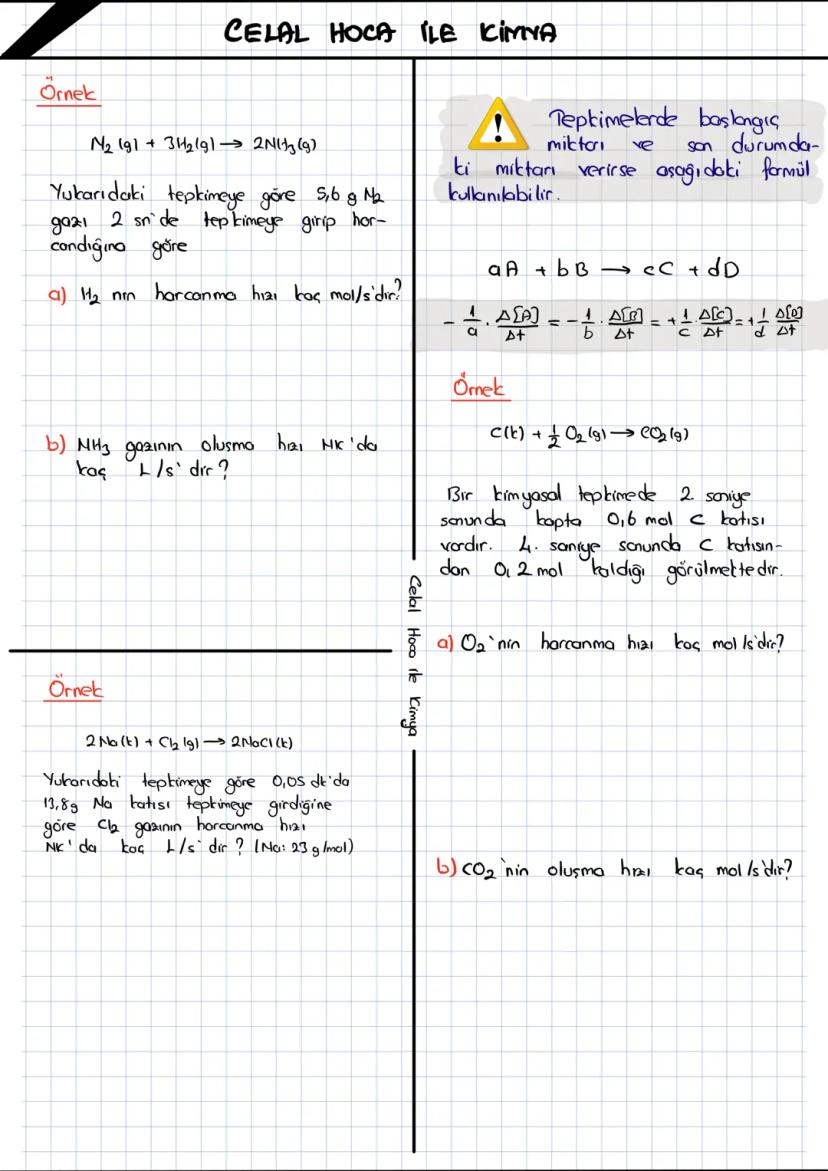 CELAL HOCA İLE KİMYA
Örnek
N₂ (g) + 3H₂(g) → 2NH₃(g)
Yukarıdaki tepkimeye göre 5,6 g N₂
gazı 2 sn'de tepkimeye girip har-
candığına göre
a) H₂ nın harcanma hızı kaç mol/s'dir?
b) NH₃ gazının oluşma hızı NK'da
kaç L/s' dir?
Örnek
2Na(k) + Cl₂(g) → 2NaCl(k)
Yukarıdaki tepkimeye göre 0,05 dk'da
13,8g Na katısı tepkimeye girdiğine
göre Cl₂ gazının harcanma hızı
NK'da kaç L/s' dir? (Na: 23 g/mol)
Celal Hoca ile Kimya
Tepkimelerde başlangıç
miktarı ve son durumda-
ki miktarı verirse aşağıdaki formül
kullanılabilir.
aA + bB → cC + dD
- 1/a . Δ[A]/Δt = - 1/b . Δ[B]/Δt = + 1/c . Δ[C]/Δt = + 1/d Δ[D]/Δt
Örnek
C(k) + 1/2 O₂(g) → CO₂(g)
Bir kimyasal tepkimede 2. saniye
sonunda kapta 0,6 mol C katısı
vardır. 4. saniye sonunda C katısın-
dan 0,2 mol kaldığı görülmektedir.
a) O₂'nin harcanma hızı kaç mol/s'dir?
b) CO₂'nin oluşma hızı kaç mol/s'dir?